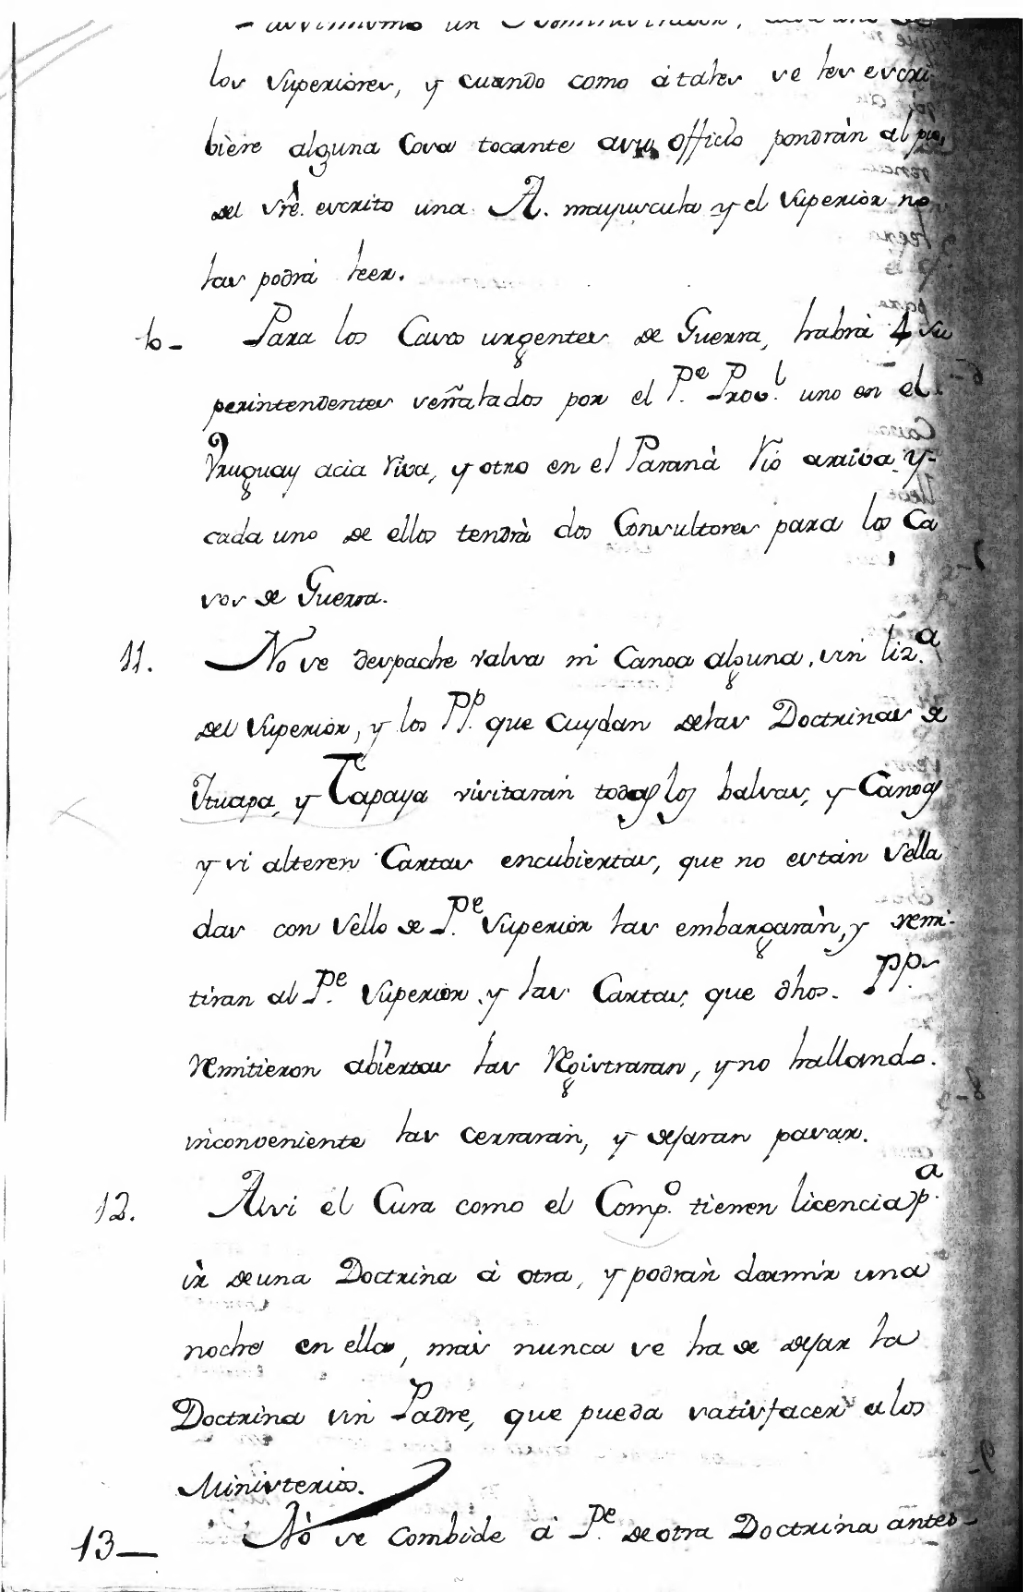 los Superiores, y cuando como á tales se les escri-
biere alguna Cosa tocante asu officio pondrán al pie,
del Sr̃e. escrito una A. mayuscula y el Superior no
las podrá leer.
10- Para los Casos urgentes de Guerra, habrá 4 Su
perintendentes señalados por el Pe. Provl. uno en el
Uruguay acia riva, y otro en el Paraná rió arriva y-
cada uno de ellos tendrà dos Consultores para los Ca
sos de Guerra.
11. No se despache valsa ni Canoa alguna, sin liz.a
del Superior, y los PP. que cuydan delas Doctrinas de
Ytuapa, y Tapaya visitarán todas los balsas, y Canoas
y si alteren Cartas encubiertas, que no están Sella
das con Sello de Pe. Superior las embargaràn, y remi-
tiran al Pe. Superior y las Cartas, que dhos. PP.s
remitieron abiertas las registraran, y no hallando.
inconveniente las cerraran, y dejaran pasar.
12. Assi el Cura como el Comp.o tienen licencia p.a
ir de una Doctrina á otra, y podrán dormir una
noche en ella, mas nunca se ha de dejar la
Doctrina sin Padre, que pueda satisfacer a los
Ministerios.
13— No se combide á Pe. de otra Doctrina antes-